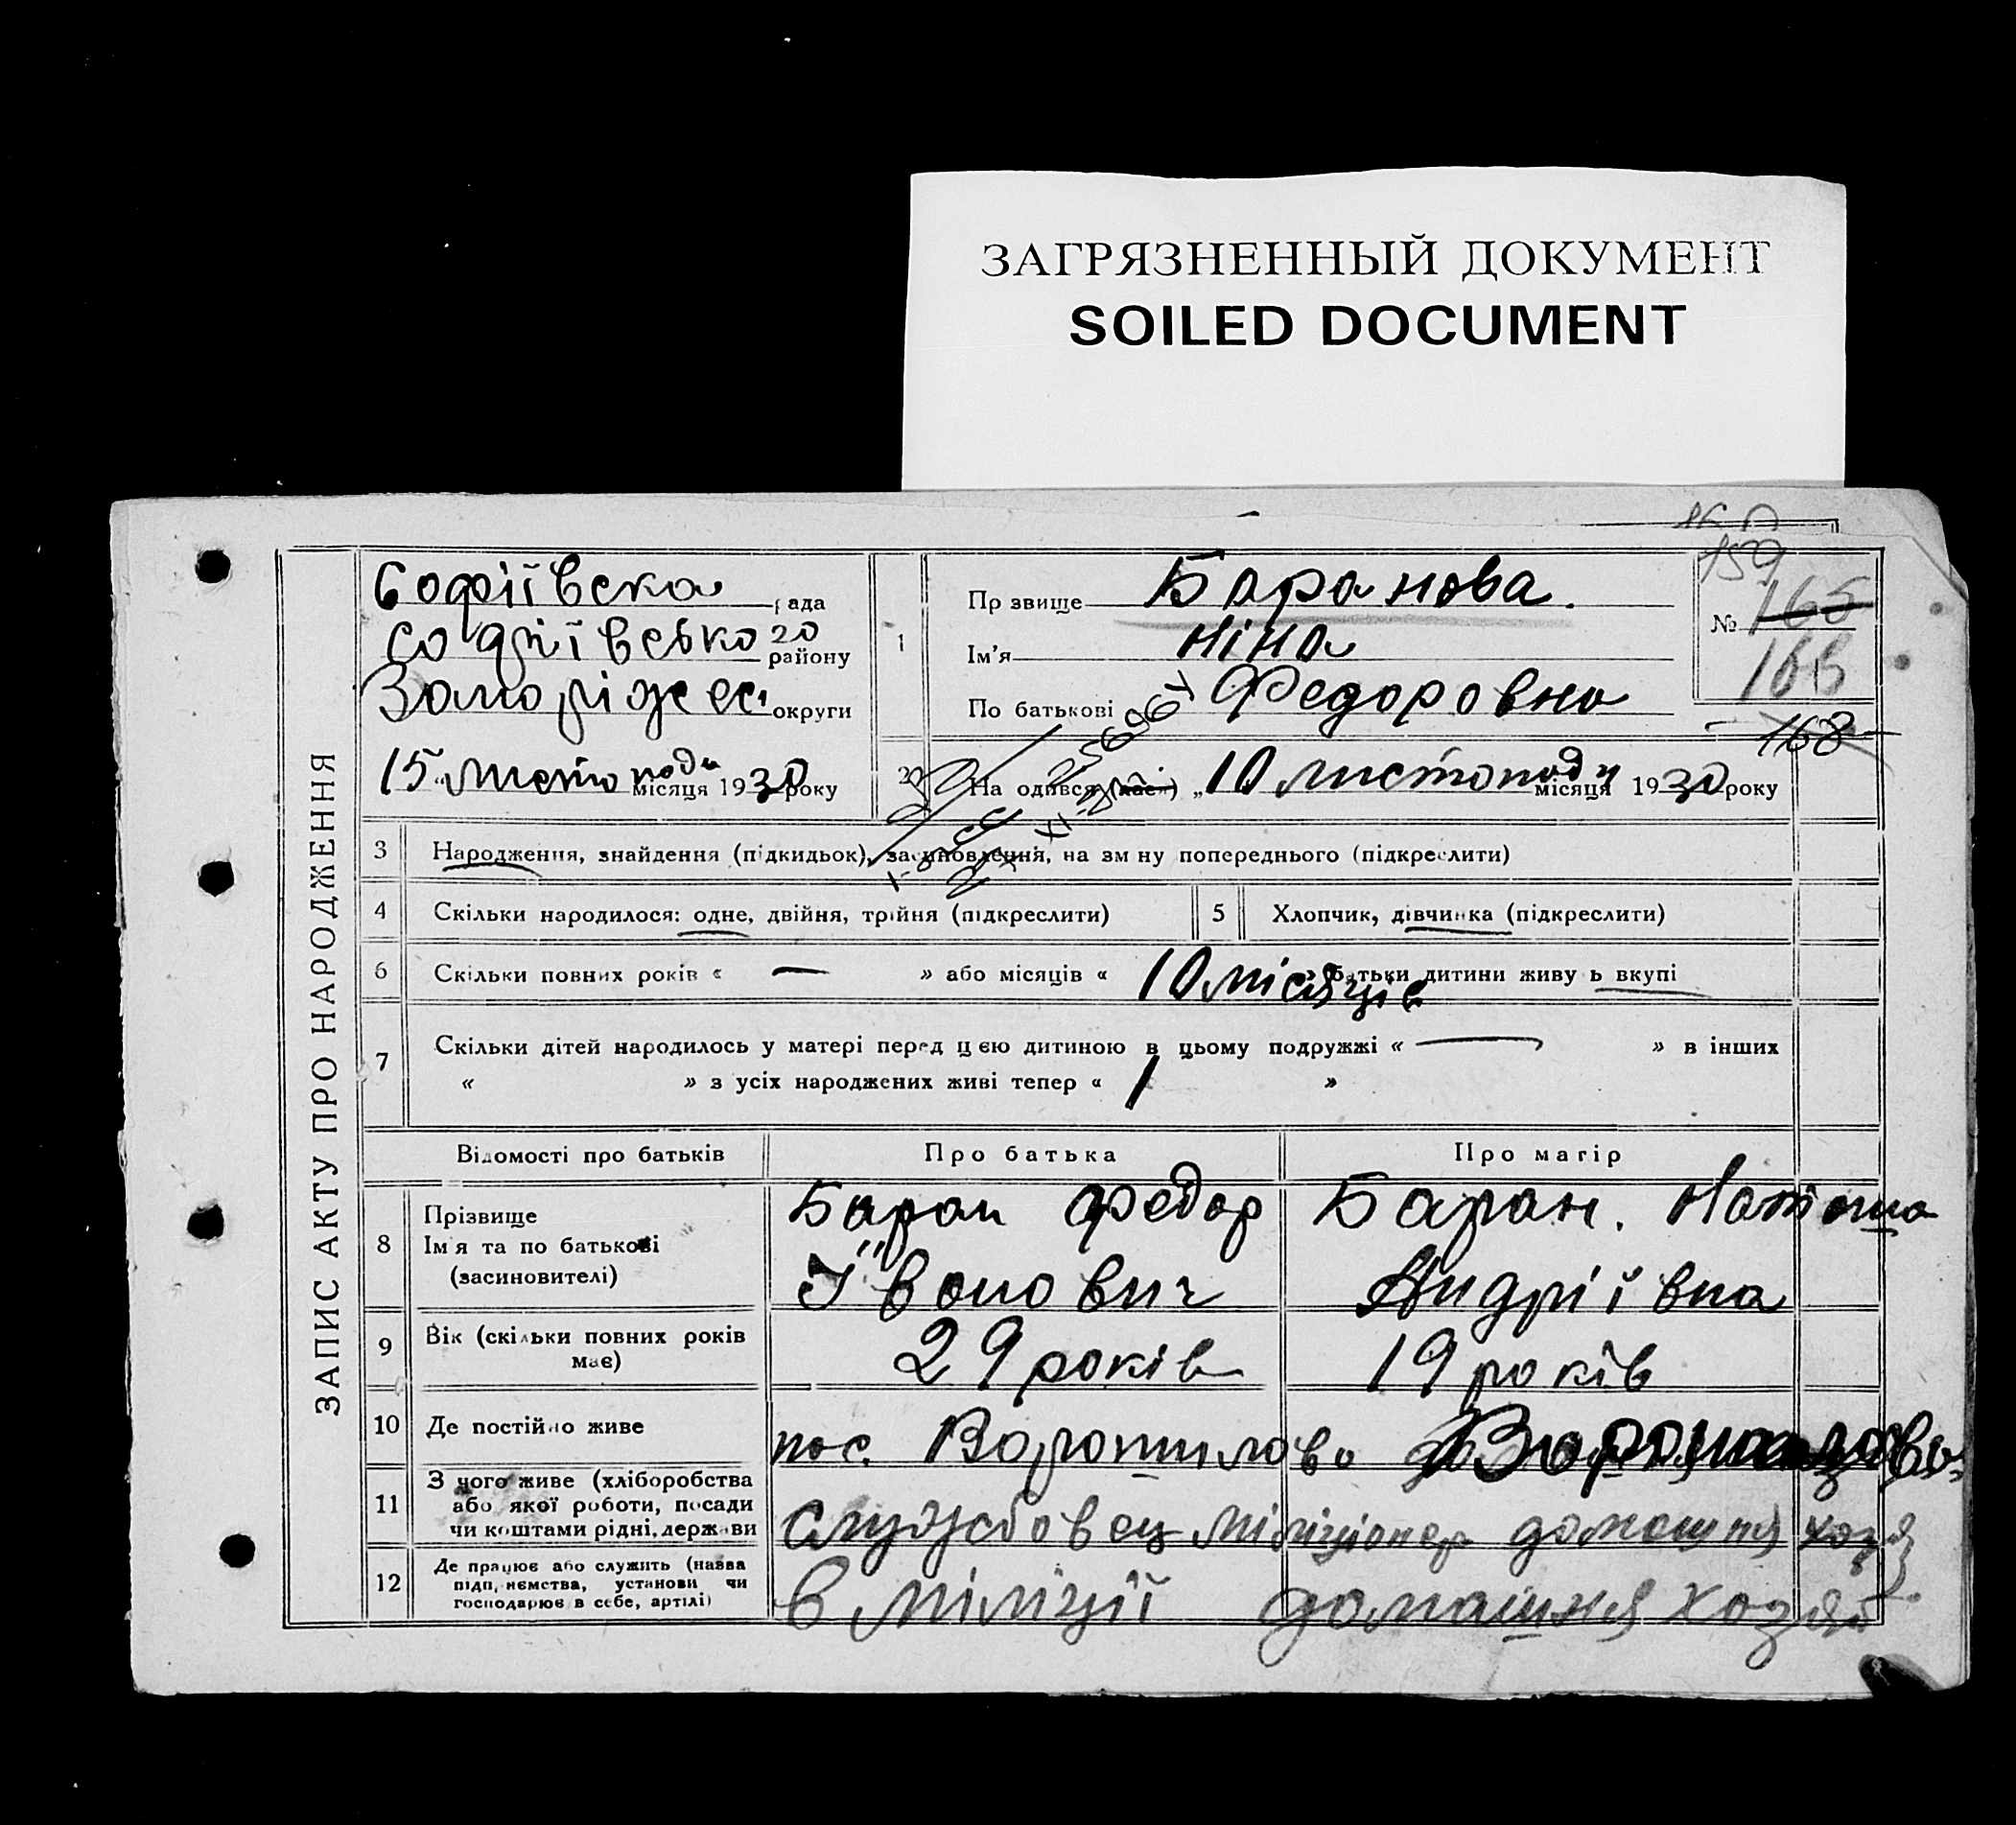 ЗАГРЯЗНЕННЫЙ ДОКУМЕНТ
SOILED DOCUMENT
159
ЗАПИС АКТУ ПРО НАРОДЖЕННЯ
Софіївска рада
Софіївсько20 району
Запоріжес округи
15 „листопада місяця 1930 року
1
Пр звище Баранова.
Ім'я Ніна
По батькові Федоровна
№ 165
166
168
2 На одився (лася) „10 листопаду місяця 1930 року
3 Народження, знайдення (підкидьок), засиновлення, на зм ну попереднього (підкреслити)
4 Скільки народилося: одне, двійня, трійня (підкреслити) 5 Хлопчик, дівчинка (підкреслити)
6 Скільки повних років « — » або місяців « 10 місяців батьки дитини живу ь вкупі
7 Скільки дітей народилось у матері перед цею дитиною в цьому подружжі « — » в інших
« » з усіх народжених живі тепер « 1 »
Відомості про батьків Про батька Про матір
8 Прізвище
Ім'я та по батькові
(засиновителі)
Баран Федор Баран. Наташа
Їванович Андріївна
9 Вік (скільки повних років має) 29 років 19 років
10 Де постійно живе пос. Ворошилово Ворошилово
11 З чого живе (хліборобства
або якої роботи, посади
чи коштами рідні, держави
службовец міліціонер домашня хозяй
12 Де працює або служить (назва
підп, немства, установи чи
господарює в себе, артілі)
в міліції домашня хозяй